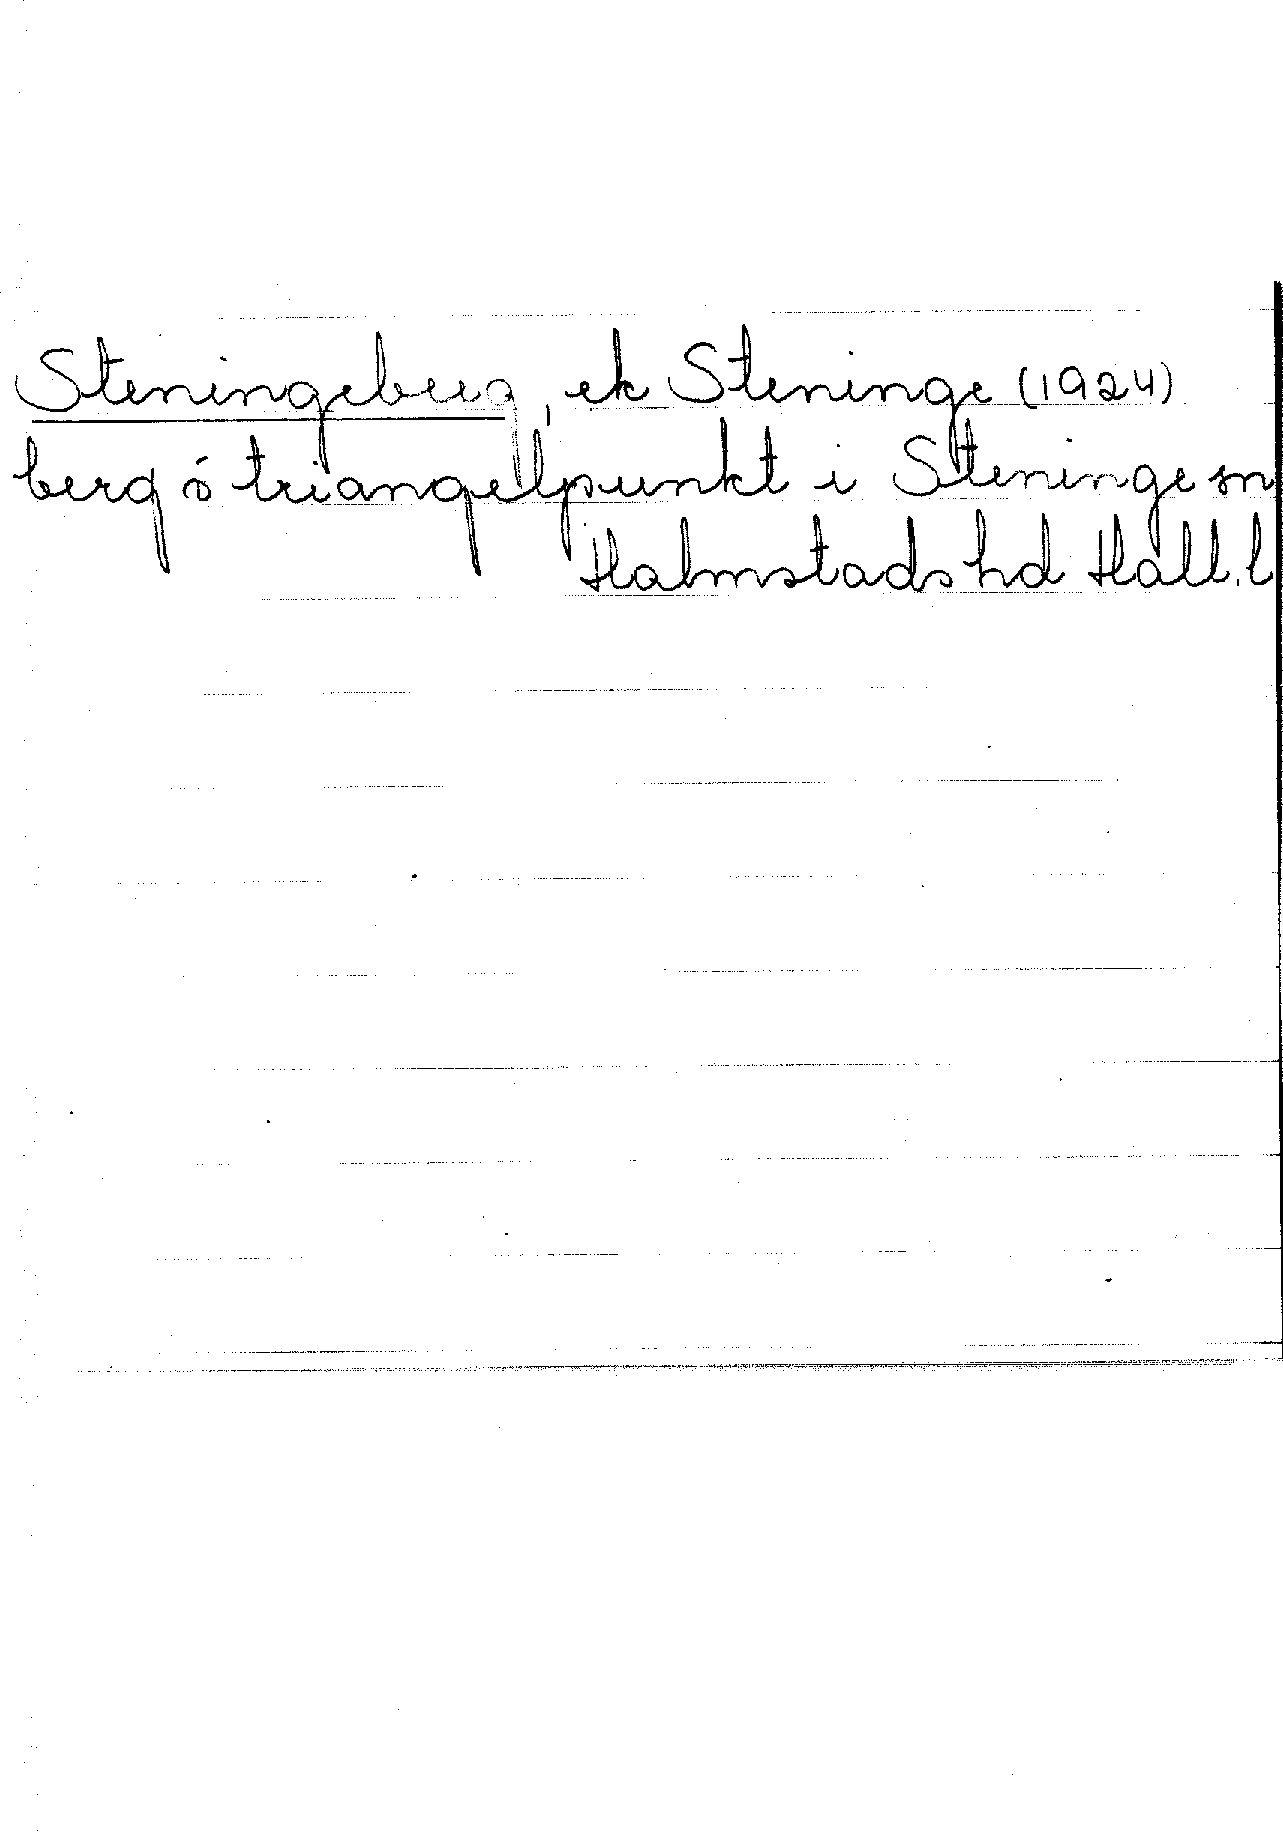 Steningeberg, ek Steninge (1924)
berg ó triangelpunkt i Steninge sn
Halmstads hd Hall. l